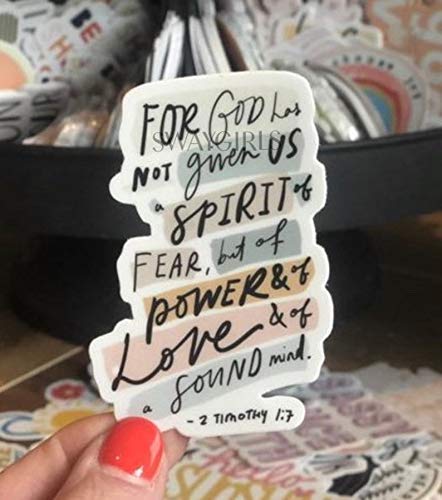 FOR GOD has
SWAYGIRLS
NOT given US
a SPIRIT of
FEAR, but of
POWER & of
Love & of
a SOUND mind.
- 2 TIMOTHY 1:7